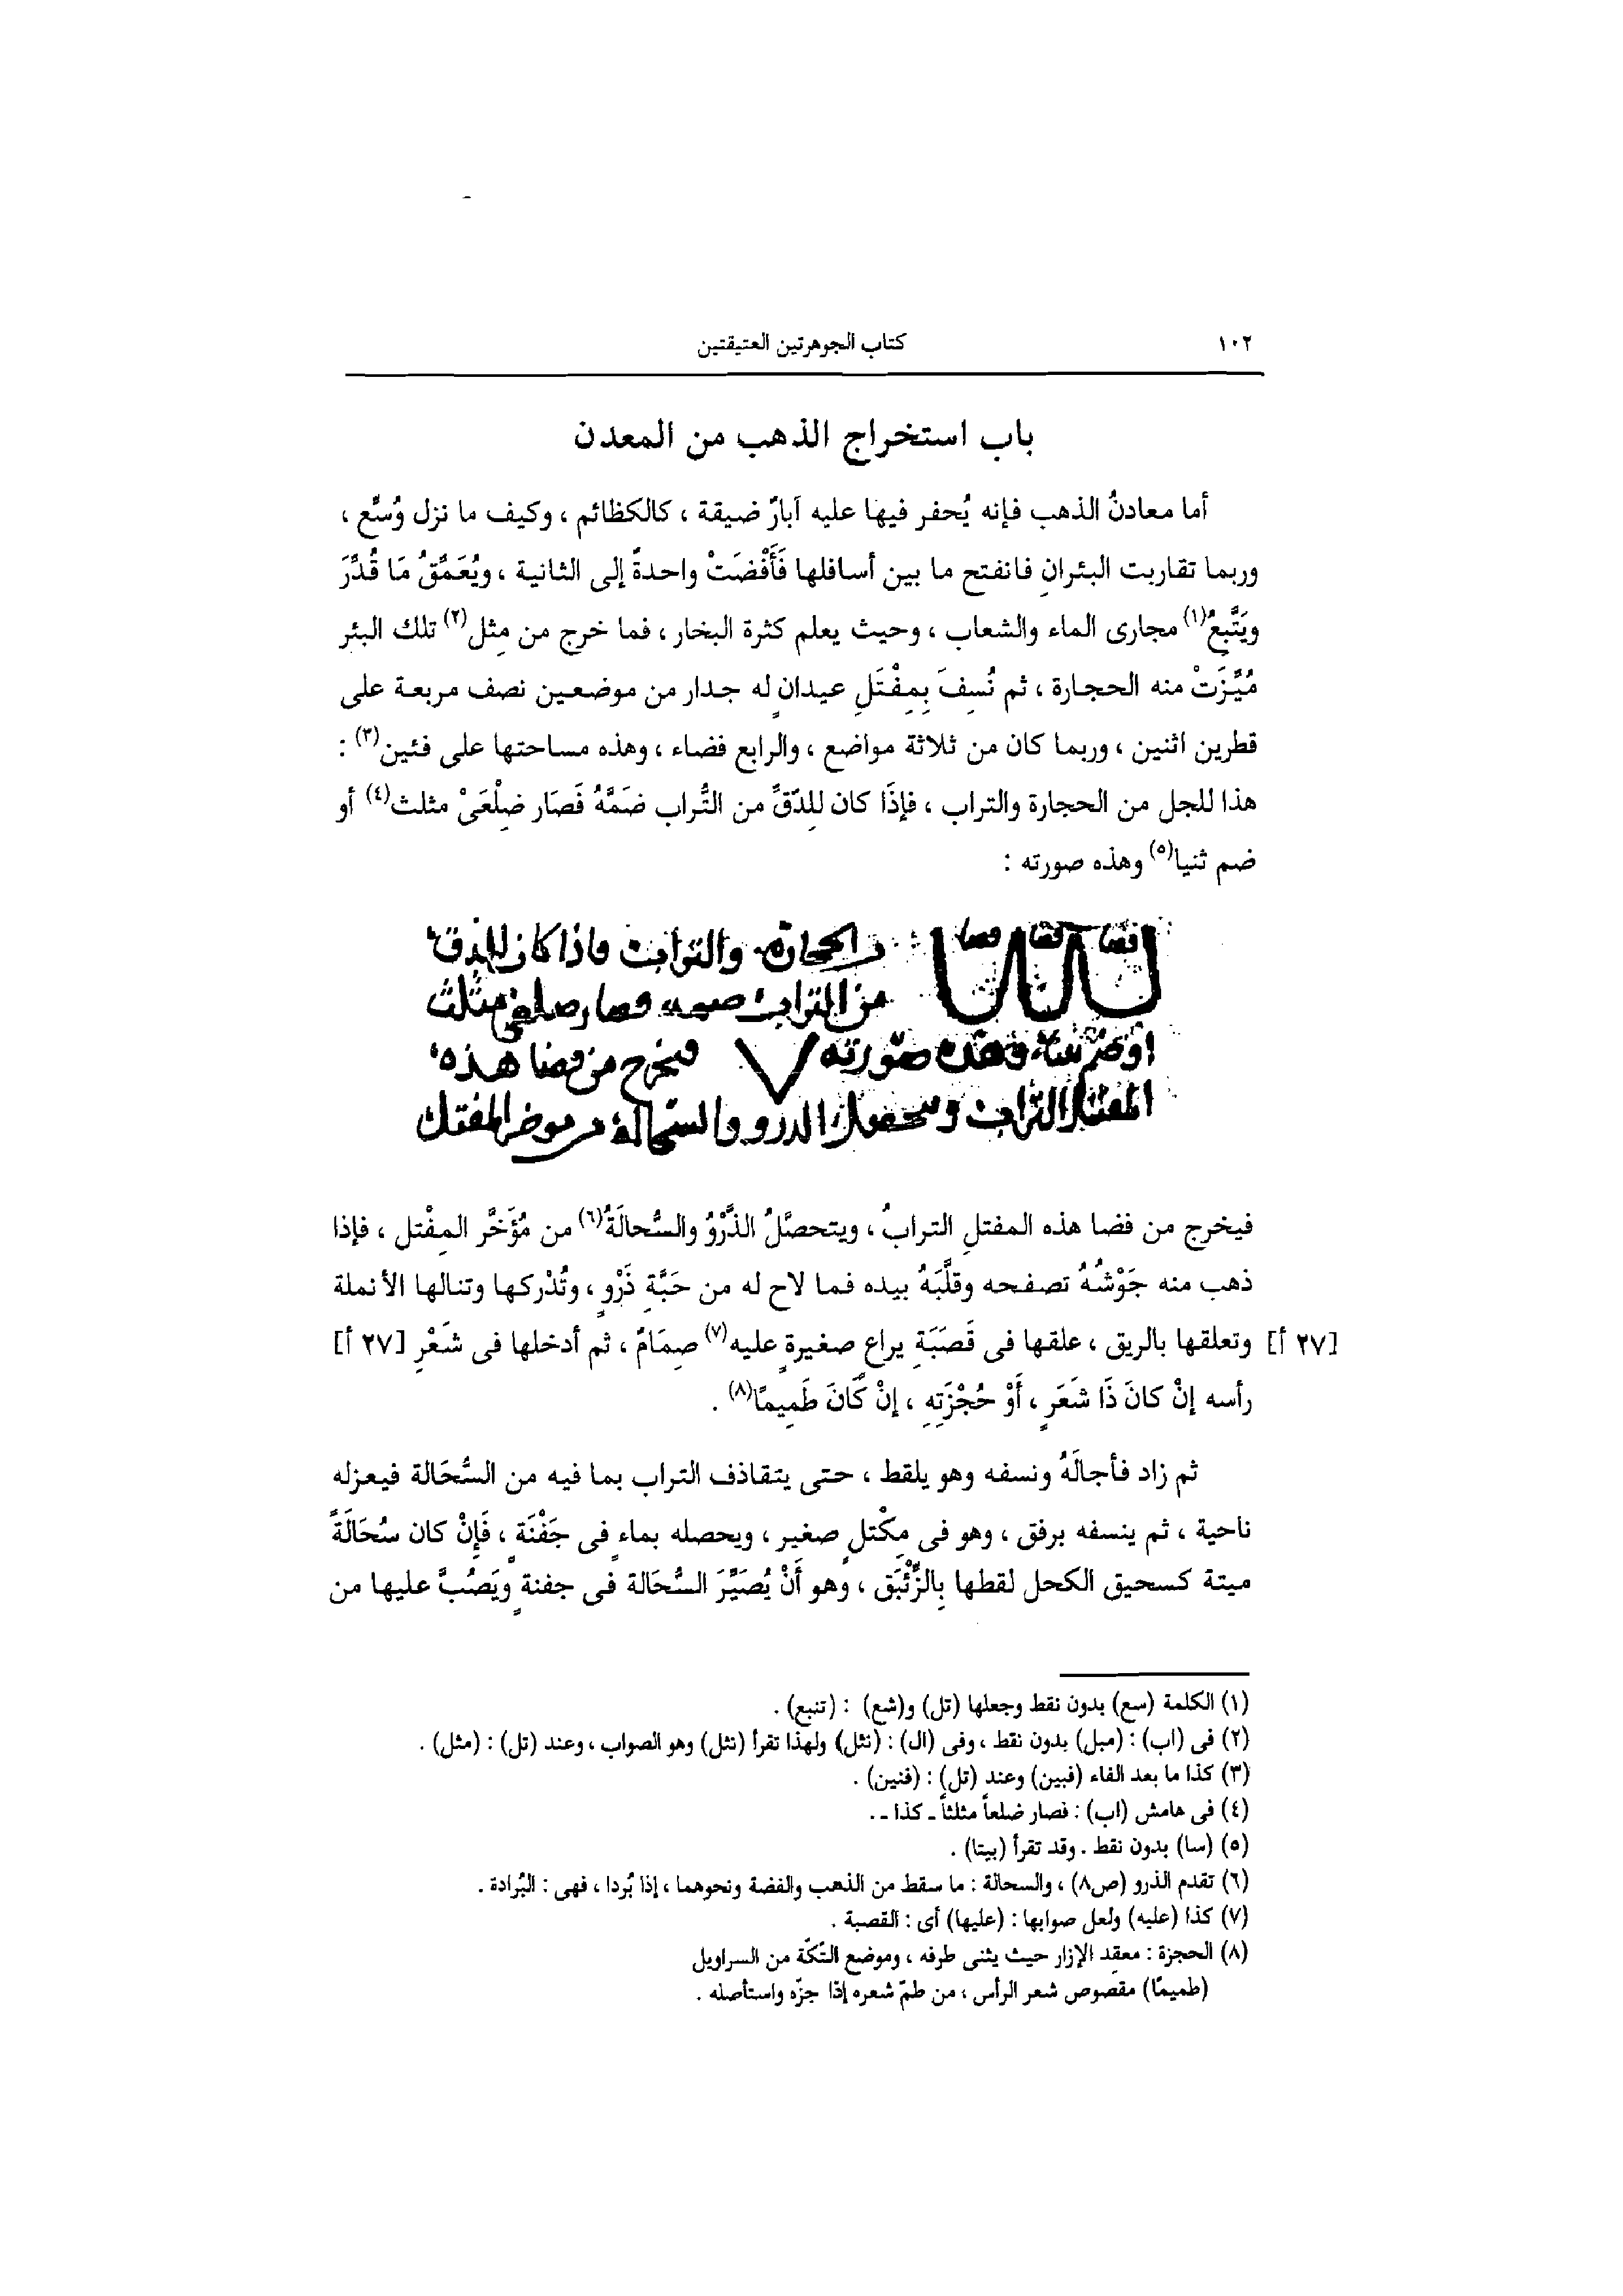 ١٠٢
كتاب الجوهرتين العتيقتين
باب استخراج الذهب من المعدن
أما معادنُ الذهب فإنه يُحفر فيها عليه آبارٌ ضيقة ، كالكظائم ، وكيف ما نزل وُسِّع ،
وربما تقاربت البئرانِ فانفتح ما بين أسافلها فَأَفْضَتْ واحدةٌ إلى الثانية ، ويُعَمِّقُ مَا قُدِّرَ
ويَتَّبِعُ(١) مجارى الماء والشعاب ، وحيث يعلم كثرة البخار ، فما خرج من مِثل(٢) تلك البئر
مُيِّزَتْ منه الحجارة ، ثم نُسِفَ بِمِفْتَلِ عيدانٍ له جدار من موضعين نصف مربعة على
قطرين اثنين ، وربما كان من ثلاثة مواضع ، والرابع فضاء ، وهذه مساحتها على فئين(٣) :
هذا للجل من الحجارة والتراب ، فإذَا كان لِلدِّقِّ من التُّراب ضَمَّهُ فَصَار ضِلْعَىْ مثلث(٤) أو
ضم ثنيا(٥) وهذه صورته :
فضا فضا فضا من الحجارة والتراب فاذا كان للدق
من التراب ضمه فصار ضلعى مثلث
او ضم وهذه صورته فيخرج من فضا هذه
المفتل التراب ويتحصل الذرو والسحالة من موخر المفتل
فيخرج من فضا هذه المفتلِ الترابُ ، ويتحصَّلُ الذَّرْوُ والسُّحالَةُ(٦) من مُؤَخَّر المِفْتل ، فإذا
ذهب منه جَوْشُهُ تصفحه وقلَّبَهُ بيده فما لاح له من حَبَّةِ ذَرْوٍ ، وتُدْركها وتنالها الأنملة
[٢٧ أ] وتعلقها بالريق ، علقها فى قَصَبَةِ يراع صغيرةٍ عليه(٧) صِمَامٌ ، ثم أدخلها فى شَعْرِ [٢٧ أ]
رأسه إنْ كانَ ذَا شَعَرٍ ، أَوْ حُجْزَتِهِ ، إنْ كَانَ طَمِيمًا(٨) .
ثم زاد فأجالَهُ ونسفه وهو يلقط ، حتى يتقاذف التراب بما فيه من السُّحَالة فيعزله
ناحية ، ثم ينسفه برفق ، وهو فى مِكْتلٍ صغير ، ويحصله بماءٍ فى جَفْنَةٍ ، فَإِنْ كان سُحَالَةً
ميتة كسحيق الكحل لقطها بِالزِّئْبَق ، وهو أَنْ يُصَيِّرَ السُّحَالة فى جفنةٍ ويَصُبَّ عليها من
(١) الكلمة (سع) بدون نقط وجعلها (تل) و(شع) : (تنبع) .
(٢) فى (اب) : (مبل) بدون نقط ، وفى (ال) : (نثل) ولهذا تقرأ (نثل) وهو الصواب ، وعند (تل) : (مثل) .
(٣) كذا ما بعد الفاء (فبين) وعند (تل) : (فنين) .
(٤) فى هامش (اب) : فصار ضلعاً مثلثاً ـ كذا ـ .
(٥) (سا) بدون نقط . وقد تقرأ (بيتا) .
(٦) تقدم الذرو (ص٨) ، والسحالة : ما سقط من الذهب والفضة ونحوهما ، إذا بُردا ، فهى : البُرادة .
(٧) كذا (عليه) ولعل صوابها : (عليها) أى : القصبة .
(٨) الحجزة : معقِد الإزار حيث يثنى طرفه ، وموضع التِّكّة من السراويل
(طميمًا) مقصوص شعر الرأس ، من طمّ شعره إذا جزّه واستأصله .